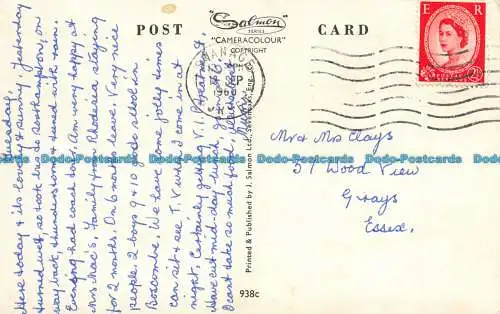 POST CARD
Salmon
SERIES
"CAMERACOLOUR"
COPYRIGHT
E R
2½D
SWANAGE
SEP
196
Tuesday.
Here today & its lovely & sunny. Yesterday
turned wet, so took bus to Southampton, on
way back, thunderstorm & turned with rain.
Evening had coach tour. Am very happy at
Mrs Mac's, family from Rhodesia staying
for 2 months. On 6 months leave. Very nice
people. 2 boys 9 & 10 yrs go to school in
Boscombe. We have some jolly times
can sit & see T.V. when I come in at
night. Certainly getting V.I.P. treatment.
Have cut mid-day meal, go
I can't take so much food,
Printed & Published by J. Salmon Ltd., Sevenoaks, Eng.
938c
Mr & Mrs Clays
57 Wood View
Grays
Essex.
Dodo-Postcards Dodo-Postcards Dodo-Postcards Dodo-Postcards Dodo-Postcards